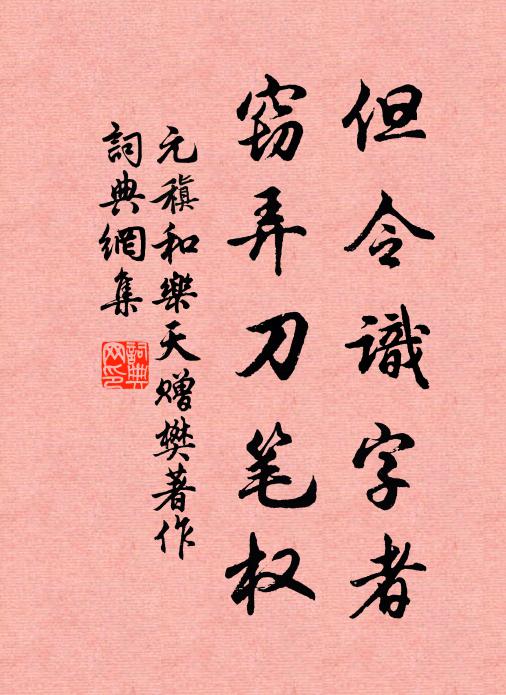 但令識字者
窃弄刀笔权
元稹和樂天贈樊著作
詞典網集
詞典网印